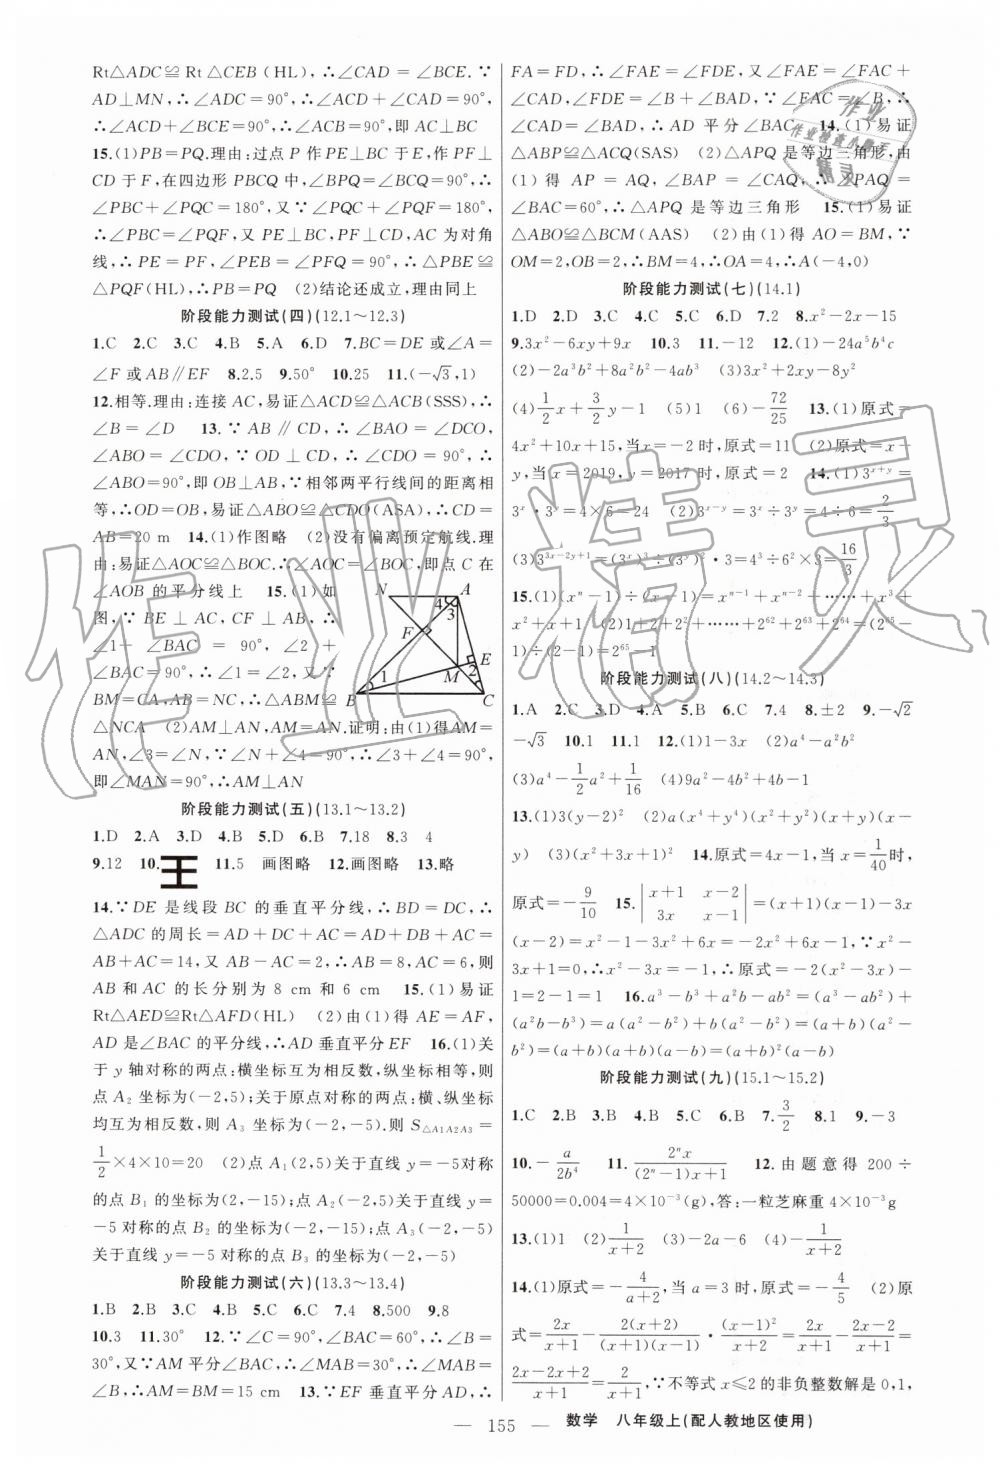 Rt△ADC≌Rt△CEB(HL),∴∠CAD=∠BCE.∵
AD⊥MN,∴∠ADC=90°,∴∠ACD+∠CAD=90°,
∴∠ACD+∠BCE=90°,∴∠ACB=90°,即AC⊥BC
15.(1)PB=PQ.理由:过点P作PE⊥BC于E,作PF⊥
CD于F,在四边形PBCQ中,∠BPQ=∠BCQ=90°,∴
∠PBC+∠PQC=180°,又∵∠PQC+∠PQF=180°,
∴∠PBC=∠PQF,又PE⊥BC,PF⊥CD,AC为对角
线,∴PE=PF,∠PEB=∠PFQ=90°,∴△PBE≌
△PQF(HL),∴PB=PQ (2)结论还成立,理由同上
阶段能力测试(四)(12.1~12.3)
1.C 2.C 3.C 4.B 5.A 6.D 7.BC=DE或∠A=
∠F或AB∥EF 8.2.5 9.50° 10.25 11.(-√3,1)
12.相等.理由:连接AC,易证△ACD≌△ACB(SSS),∴
∠B=∠D 13.∵AB∥CD,∴∠BAO=∠DCO,
∠ABO=∠CDO,∵OD⊥CD,∴∠CDO=90°,∴
∠ABO=90°,即OB⊥AB,∵相邻两平行线间的距离相
等,∴OD=OB,易证△ABO≌△CDO(ASA),∴CD=
AB=20 m 14.(1)作图略 (2)没有偏离预定航线.理
由:易证△AOC≌△BOC.∴∠AOC=∠BOC,即点C在
∠AOB的平分线上 15.(1)如
图,∵BE⊥AC,CF⊥AB,∴
∠1+∠BAC=90°,∠2+
∠BAC=90°,∴∠1=∠2,∵
BM=CA,AB=NC,∴△ABM≌
△NCA (2)AM⊥AN,AM=AN.证明:由(1)得AM=
AN,∠3=∠N,∵∠N+∠4=90°,∴∠3+∠4=90°,
即∠MAN=90°,∴AM⊥AN
N A 4 3 F E M 2 1 B C
阶段能力测试(五)(13.1~13.2)
1.D 2.A 3.D 4.B 5.D 6.B 7.18 8.3 4
9.12 10.王 11.5 画图略 12.画图略 13.略
14.∵DE是线段BC的垂直平分线,∴BD=DC,∴
△ADC的周长=AD+DC+AC=AD+DB+AC=
AB+AC=14,又AB-AC=2,∴AB=8,AC=6,则
AB和AC的长分别为8 cm和6 cm 15.(1)易证
Rt△AED≌Rt△AFD(HL) (2)由(1)得AE=AF,
AD是∠BAC的平分线,∴AD垂直平分EF 16.(1)关
于y轴对称的两点:横坐标互为相反数,纵坐标相等,则
点A₂坐标为(-2,5);关于原点对称的两点:横、纵坐标
均互为相反数,则A₃坐标为(-2,-5).则S△A1A2A3=
1/2×4×10=20 (2)点A₁(2,5)关于直线y=-5对称
的点B₁的坐标为(2,-15);点A₂(-2,5)关于直线y=
-5对称的点B₂的坐标为(-2,-15);点A₃(-2,-5)
关于直线y=-5对称的点B₃的坐标为(-2,-5)
阶段能力测试(六)(13.3~13.4)
1.B 2.B 3.C 4.D 5.C 6.C 7.4 8.500 9.8
10.3 11.30° 12.∵∠C=90°,∠BAC=60°,∴∠B=
30°,又∵AM平分∠BAC,∴∠MAB=30°,∴∠MAB=
∠B,∴AM=BM=15 cm 13.∵EF垂直平分AD,∴
FA=FD,∴∠FAE=∠FDE,又∠FAE=∠FAC+
∠CAD,∠FDE=∠B+∠BAD,∵∠FAC=∠B,∴
∠CAD=∠BAD,∴AD平分∠BAC 14.(1)易证
△ABP≌△ACQ(SAS) (2)△APQ是等边三角形,由
(1)得AP=AQ,∠BAP=∠CAQ,∴∠PAQ=
∠BAC=60°,∴△APQ是等边三角形 15.(1)易证
△ABO≌△BCM(AAS) (2)由(1)得AO=BM,∵
OM=2,OB=2,∴BM=4,∴OA=4,∴A(-4,0)
阶段能力测试(七)(14.1)
1.D 2.D 3.C 4.C 5.C 6.D 7.2 8.x²-2x-15
9.3x²-6xy+9x 10.3 11.-12 12.(1)-24a⁵b⁴c
(2)-2a³b²+8a²b²-4ab³ (3)3x²-3xy-8y²
(4)1/2x+3/2y-1 (5)1 (6)-72/25 13.(1)原式=
4x²+10x+15,当x=-2时,原式=11 (2)原式=x-
y,当x=2019,y=2017时,原式=2 14.(1)3ˣ⁺ʸ=
3ˣ·3ʸ=4×6=24 (2)3ˣ⁻ʸ=3ˣ÷3ʸ=4÷6=2/3
(3)3³ˣ⁻²ʸ⁺¹=(3ˣ)³÷(3ʸ)²·3=4³÷6²×3=16/3
15.(1)(xⁿ-1)÷(x-1)=xⁿ⁻¹+xⁿ⁻²+……+x³+
x²+x+1 (2)1+2+2²+……+2⁶²+2⁶³+2⁶⁴=(2⁶⁵-
1)÷(2-1)=2⁶⁵-1
阶段能力测试(八)(14.2~14.3)
1.A 2.C 3.D 4.A 5.B 6.C 7.4 8.±2 9.-√2
-√3 10.1 11.1 12.(1)1-3x (2)a⁴-a²b²
(3)a⁴-1/2a²+1/16 (4)9a²-4b²+4b-1
13.(1)3(y-2)² (2)a(x⁴+y⁴)(x²+y²)(x+y)(x-
y) (3)(x²+3x+1)² 14.原式=4x-1,当x=1/40时,
原式=-9/10 15.|x+1 x-2; 3x x-1|=(x+1)(x-1)-3x
(x-2)=x²-1-3x²+6x=-2x²+6x-1,又∵x²-
3x+1=0,∴x²-3x=-1,∴原式=-2(x²-3x)-
1=2-1=1 16.a³-b³+a²b-ab²=(a³-ab²)+
(a²b-b³)=a(a²-b²)+b(a²-b²)=(a+b)(a²-
b²)=(a+b)(a+b)(a-b)=(a-b)(a+b)²
阶段能力测试(九)(15.1~15.2)
1.C 2.B 3.B 4.A 5.C 6.B 7.3/2 8.1 9.-3
10.-a/2b⁴ 11.2ⁿx/((2ⁿ-1)x+1) 12.由题意得200÷
50000=0.004=4×10⁻³(g),答:一粒芝麻重4×10⁻³g
13.(1)1 (2)1/(x+2) (3)-2a-6 (4)-1/(x+2)
14.(1)原式=-4/(a+2),当a=3时,原式=-4/5 (2)原
式=2x/(x+1)-2(x+2)/((x+1)(x-1))·(x-1)²/(x+2)=2x/(x+1)-(2x-2)/(x+1)=
(2x-2x+2)/(x+1)=2/(x+1),∵不等式x≤2的非负整数解是0,1,
— 155 — 数学 八年级上(配人教地区使用)
作业精灵